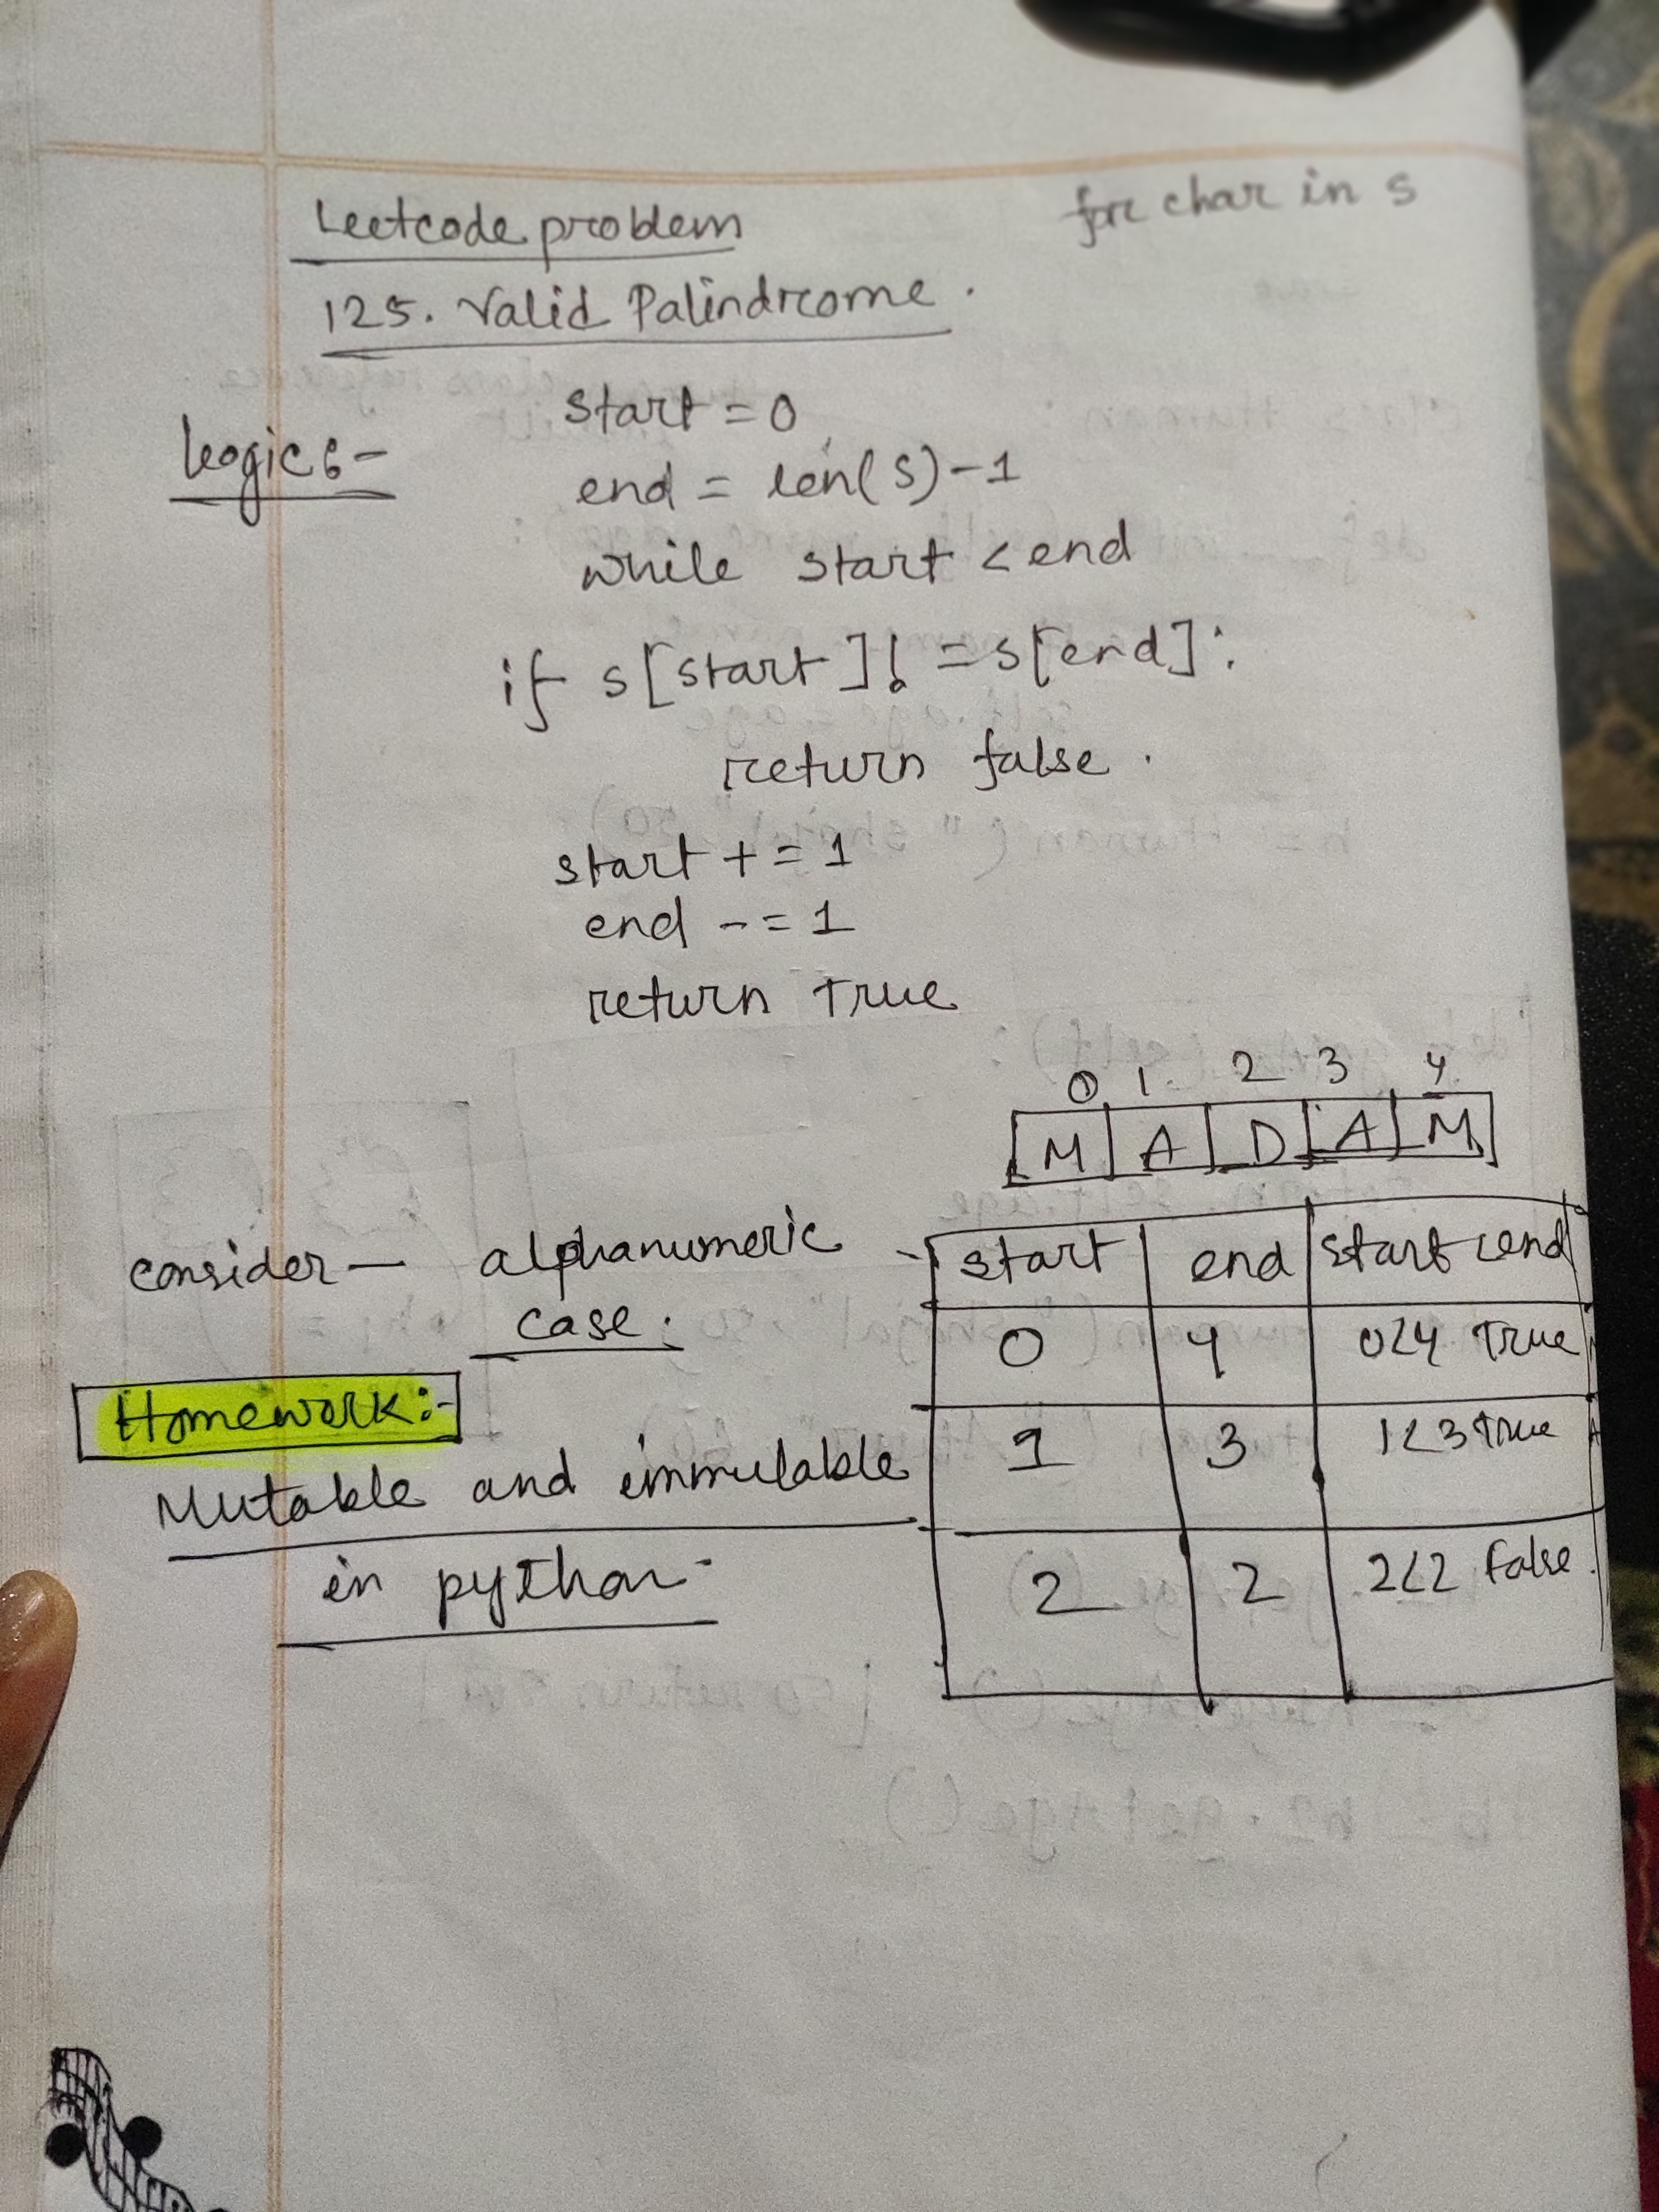 for char in s
Leetcode problem
125. Valid Palindrome.
Logic :-
start = 0
end = len(s)-1
while start < end
if s[start] != s[end]:
return false.
start += 1
end -= 1
return True
0 1. 2 3 4
M A D A M
consider — alphanumeric
case.
start end start < end
0 4 0<4 True
1 3 1<3 True
2 2 2<2 False.
Homework:-
Mutable and immutable
in python-